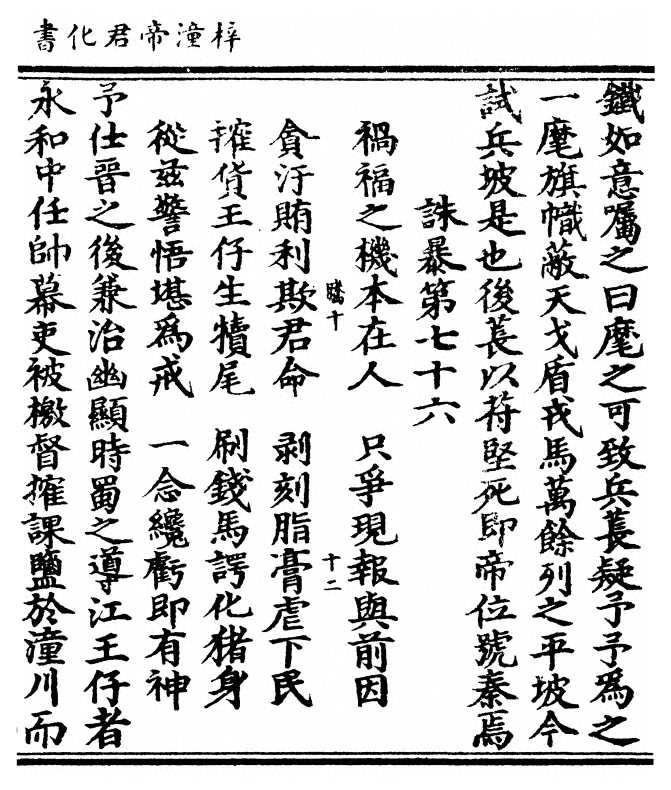 梓潼帝君化書
鐵如意囑之曰麾之可致兵萇疑予予爲之
一麾旗幟蔽天戈盾戎馬萬餘列之平坡今
試兵坡是也後萇以苻堅死即帝位號秦焉
誅暴第七十六
禍福之機本在人　只爭現報與前因
騰十　十二
貪汙賄利欺君命　剥刻脂膏虐下民
搉貨王仔生犢尾　刷錢馬諤化猪身
從茲警悟堪爲戒　一念纔虧即有神
予仕晉之後兼治幽顯時蜀之導江王仔者
永和中任帥幕吏被檄督搉課鹽於潼川而